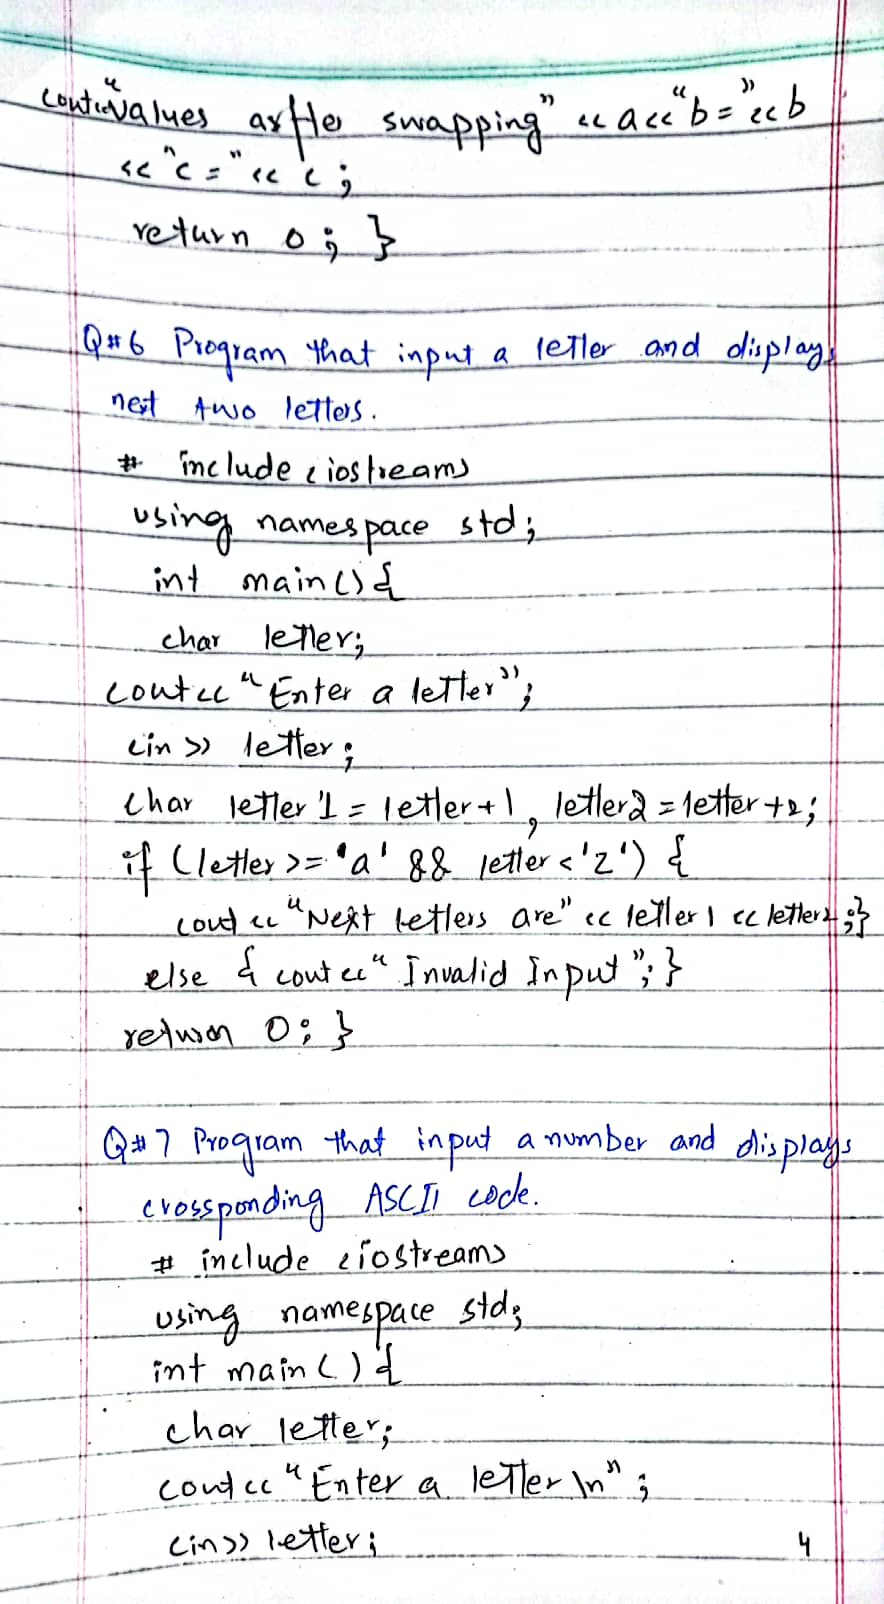 cout<<"Values arfter swapping" << a<<"b="<<b
<<"c="<< c;
return 0; }
Q#6 Program that input a letter and displays
next two letters.
# include <iostream>
using namespace std;
int main(){
char letter;
cout<<"Enter a letter";
cin >> letter;
char letter1 = letter+1, letter2 = letter+2;
if (letter >= 'a' && letter < 'z') {
cout << "Next letters are" << letter1 << letter2;}
else { cout<<" Invalid Input "; }
return 0; }
Q#7 Program that input a number and displays
crossponding ASCII code.
# include <iostream>
using namespace std;
int main() {
char letter;
cout<<"Enter a letter \n";
cin>> letter;
4